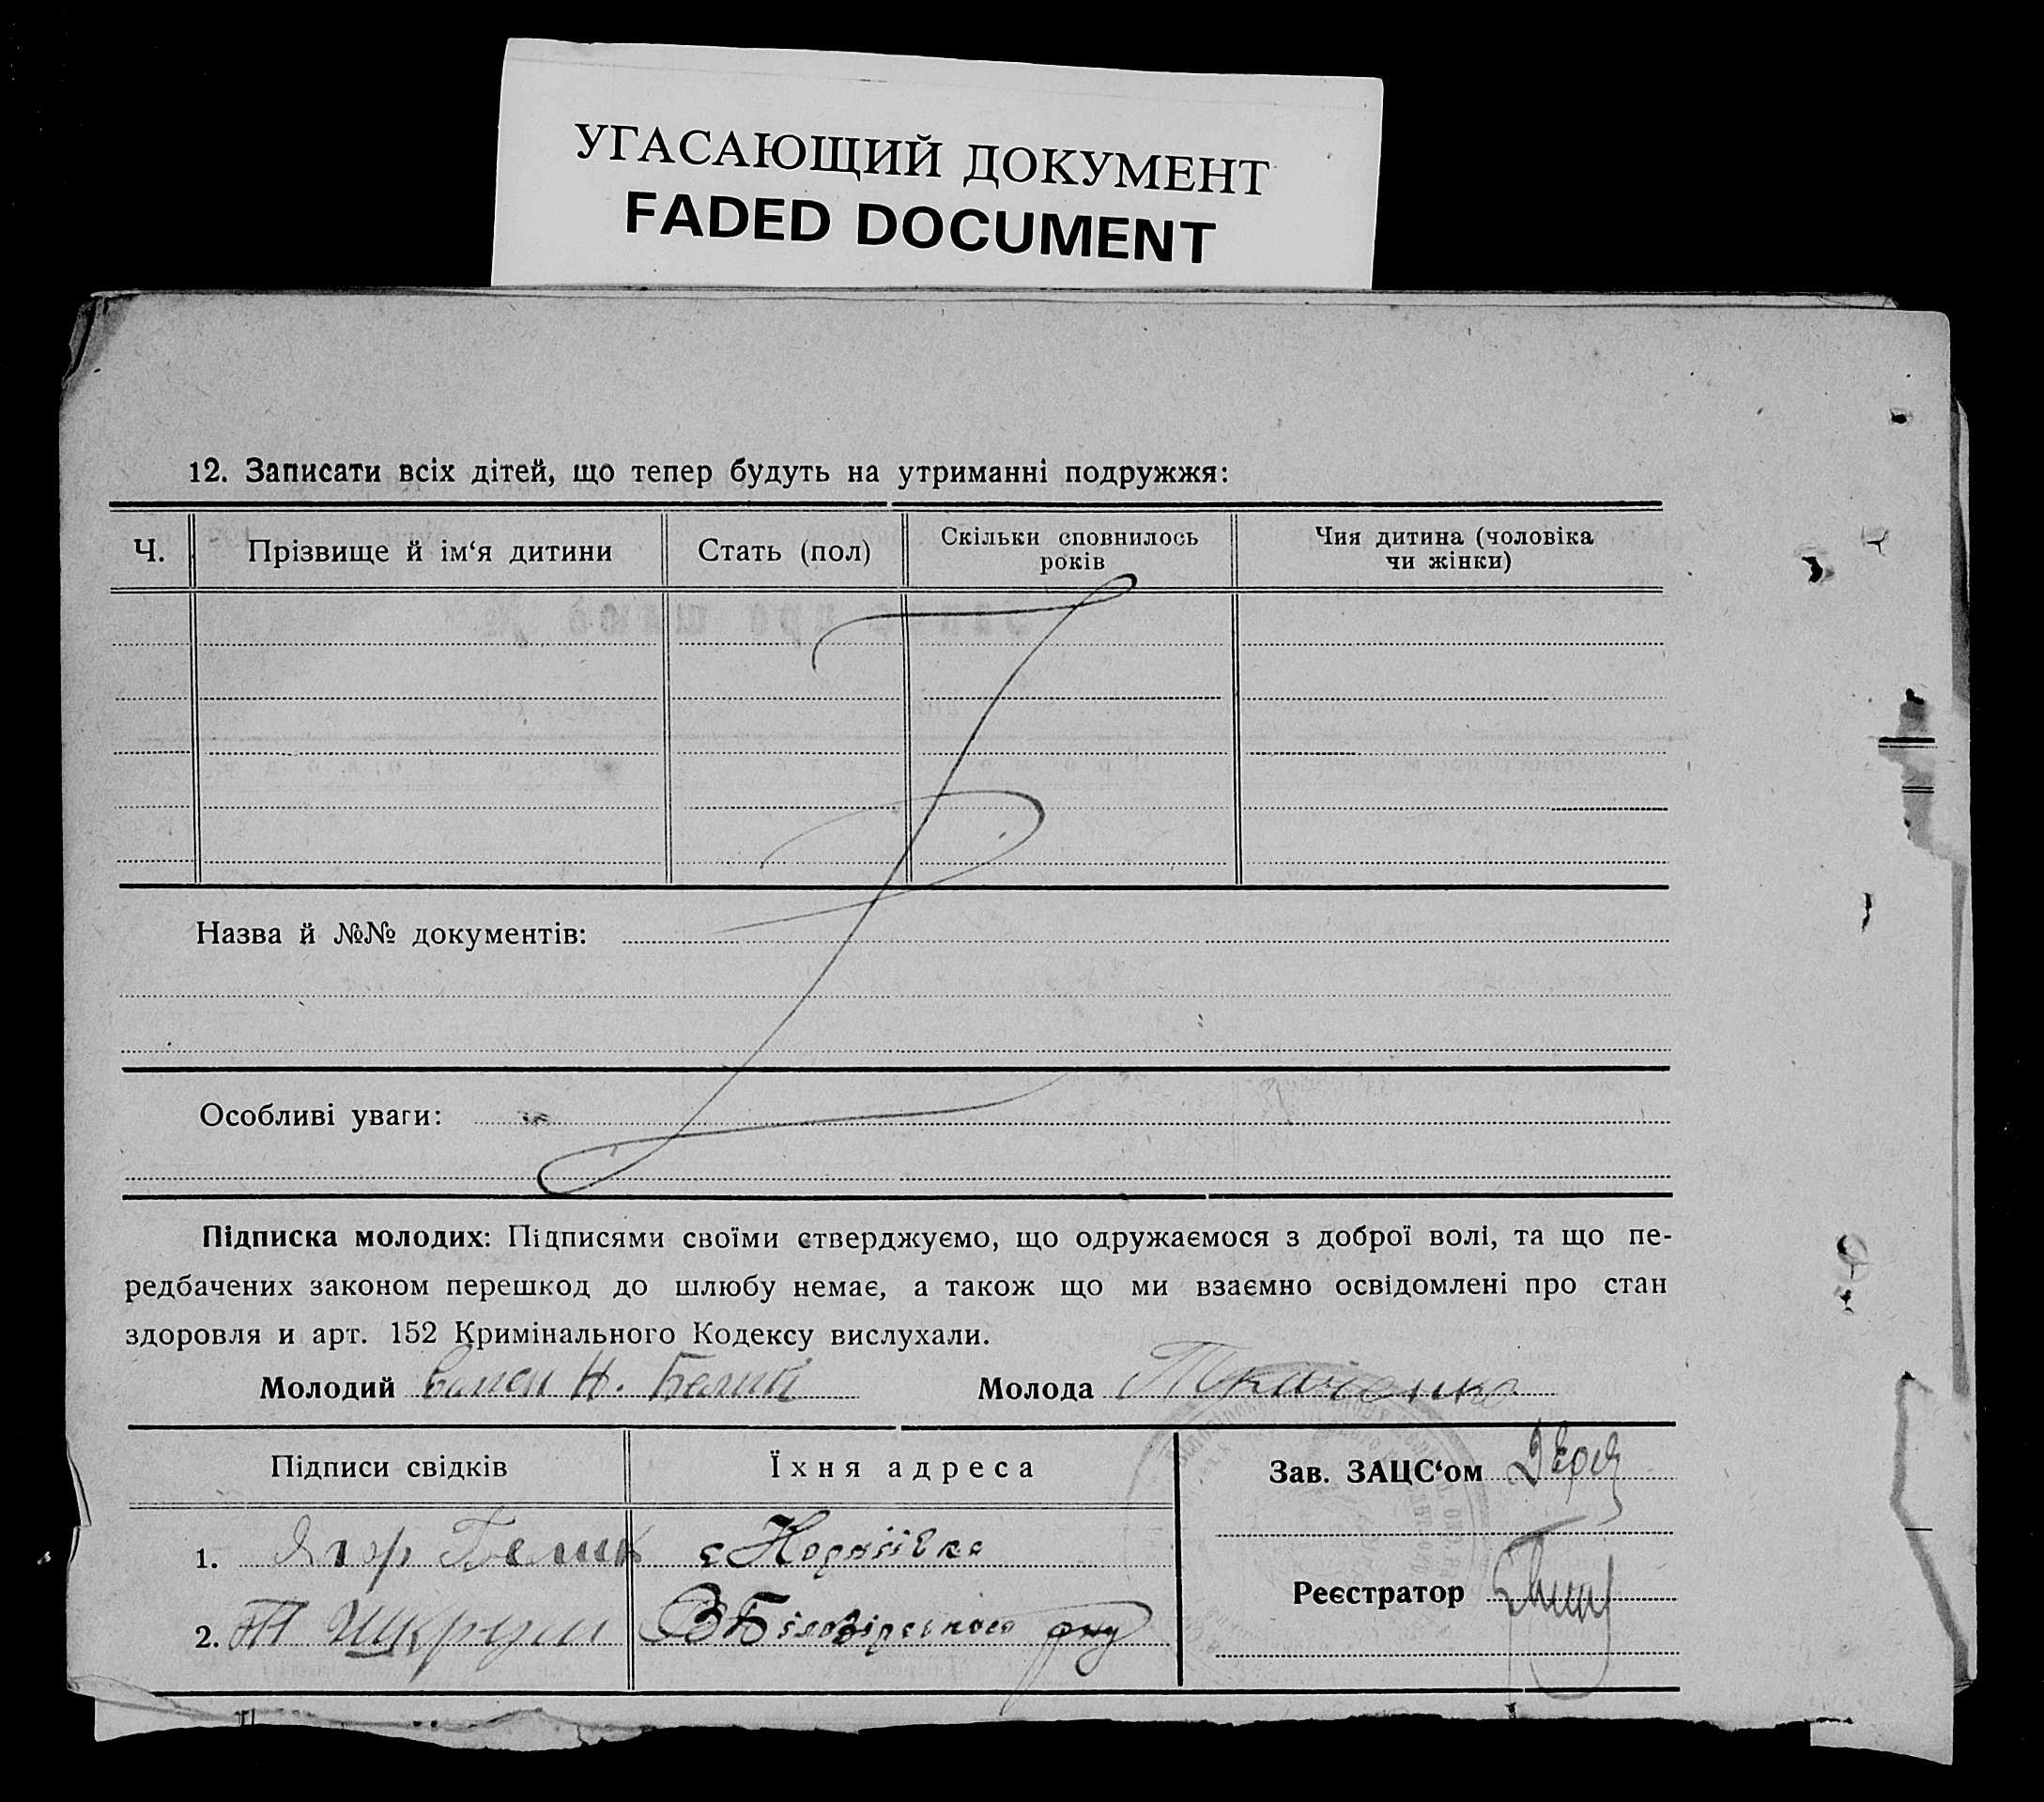 УГАСАЮЩИЙ ДОКУМЕНТ
FADED DOCUMENT
12. Записати всіх дітей, що тепер будуть на утриманні подружжя:
Ч.
Прізвище й ім‘я дитини
Стать (пол)
Скільки сповнилось
років
Чия дитина (чоловіка
чи жінки)
Назва й №№ документів:
Особливі уваги:
Підписка молодих: Підписями своїми стверджуємо, що одружаємося з доброї волі, та що пе-
редбачених законом перешкод до шлюбу немає, а також що ми взаємно освідомлені про стан
здоровля и арт. 152 Кримінального Кодексу вислухали.
Молодий Н. Белик
Молода Ткаченко
Підписи свідків
Їхня адреса
Зав. ЗАЦС‘ом
1. Ягор Белик с
2.
Реєстратор